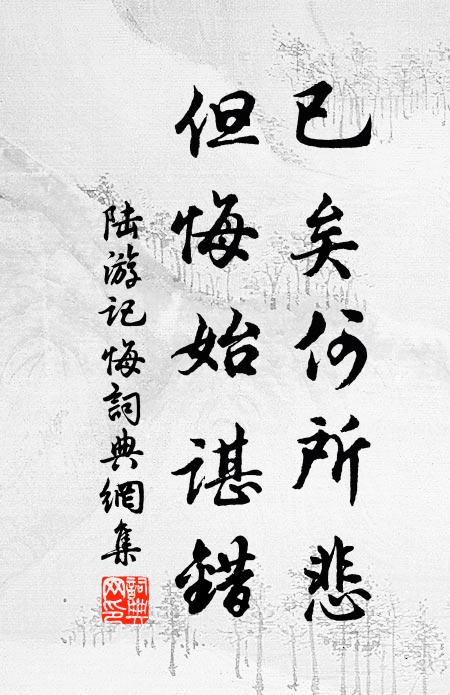 已矣何所悲
但悔始谌錯
陆游记悔詞典網集
詞典網印